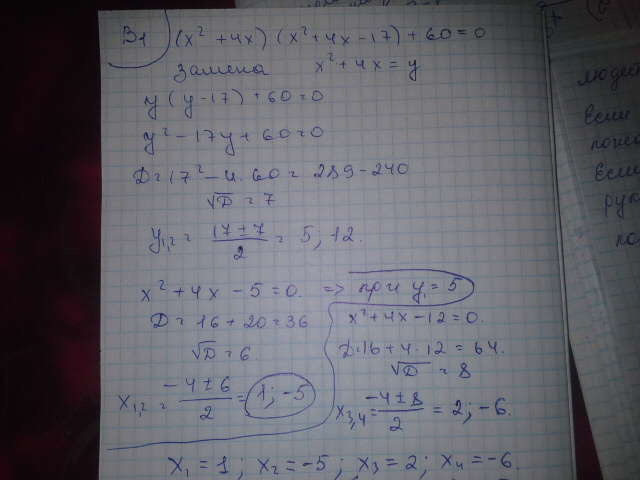 В1 (x² + 4x) (x² + 4x - 17) + 60 = 0
Замена x² + 4x = y
y (y - 17) + 60 = 0
y² - 17y + 60 = 0
D = 17² - 4·60 = 289 - 240
√D = 7
y1,2 = (17 ± 7)/2 = 5; 12.
x² + 4x - 5 = 0. => при y1 = 5
D = 16 + 20 = 36
√D = 6.
x1,2 = (-4 ± 6)/2 = 1; -5
x² + 4x - 12 = 0.
D = 16 + 4·12 = 64.
√D = 8
x3,4 = (-4 ± 8)/2 = 2; -6.
x1 = 1; x2 = -5; x3 = 2; x4 = -6.
Если
Если